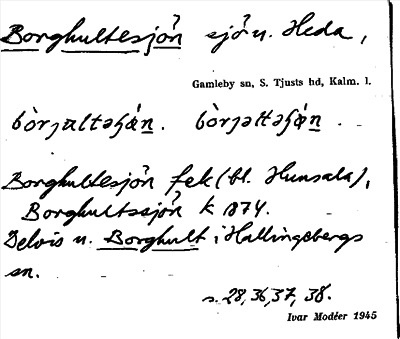 Borghultesjön sjö u. Heda,
Gamleby sn, S. Tjusts hd, Kalm. l.
Borghultesjön fek (bl. Hunsala),
Borghultssjön k 1874.
Delvis u. Borghult i Hallingebergs
sn.
s. 28, 36, 37, 38.
Ivar Modéer 1945